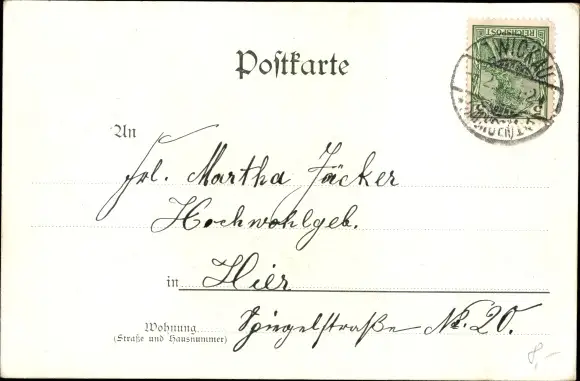 REICHSPOST
5
ZWICKAU
Postkarte
An
Frl. Martha Jäcker
Hochwohlgeb.
in Hier
Wohnung Spiegelstraße No. 20.
(Straße und Hausnummer)
8,-